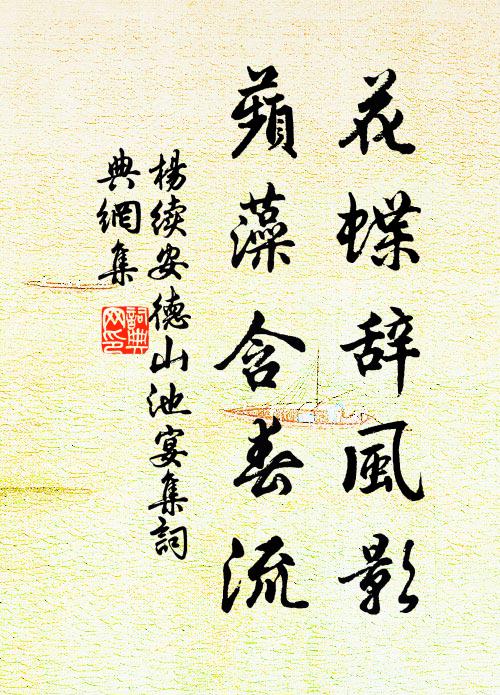 花蝶辞風影
蘋藻含春流
楊續安德山池宴集詞
典網集
詞典
网印